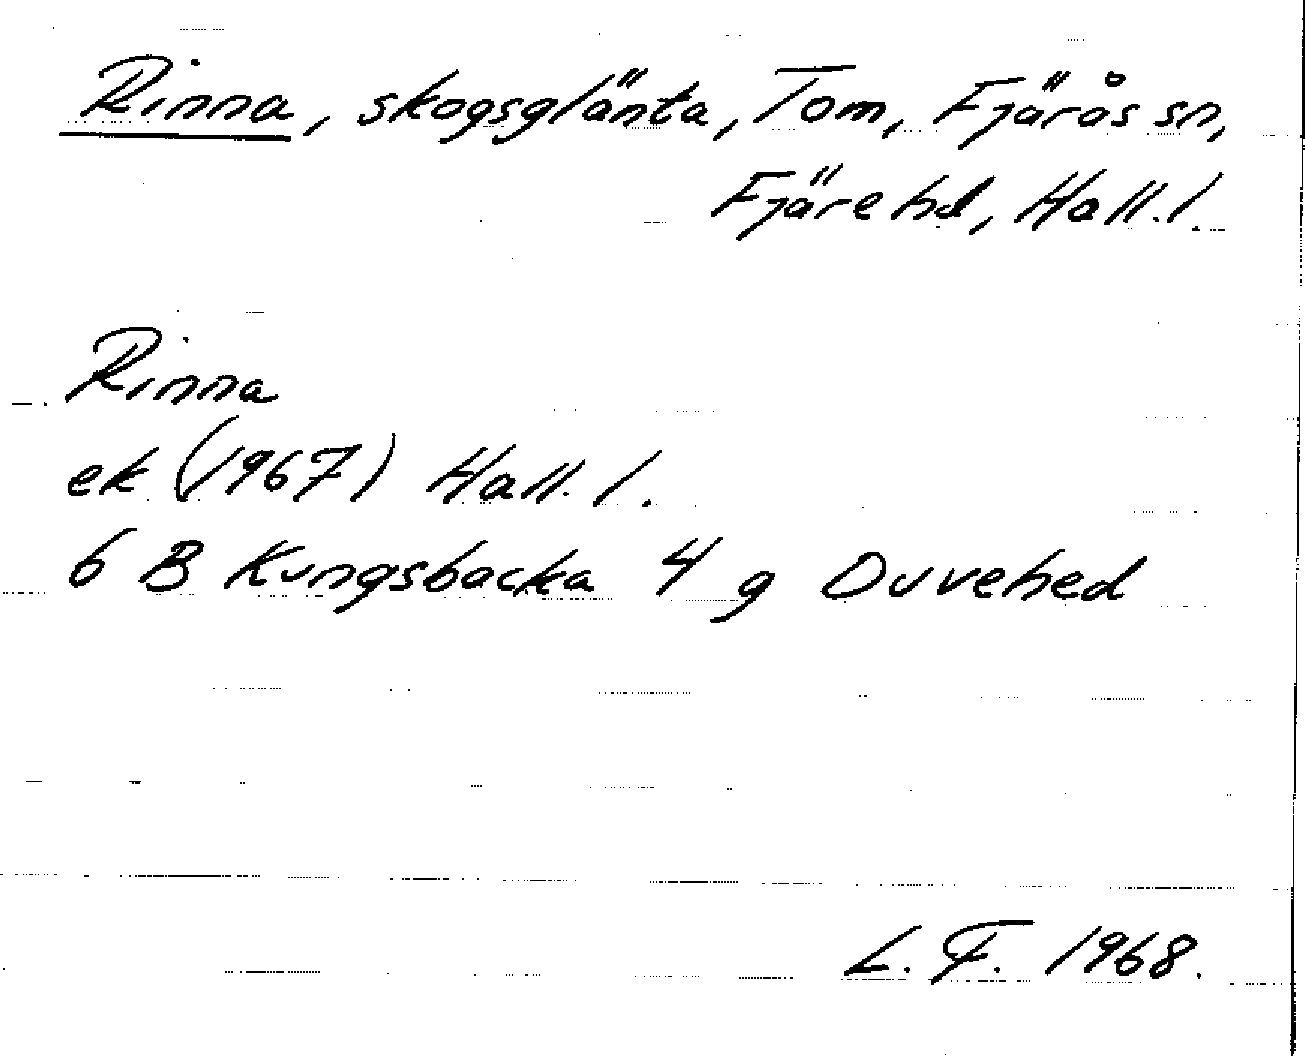 Rinna, skogsglänta, Tom, Fjärås sn,
Fjäre hd, Hall. l.
Rinna
ek (1967) Hall. l.
6 B Kungsbacka 4 g Duvehed
L. F. 1968.